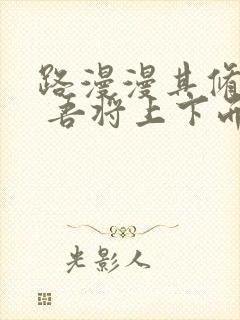 路漫漫其脩
吾将上下而
光影人